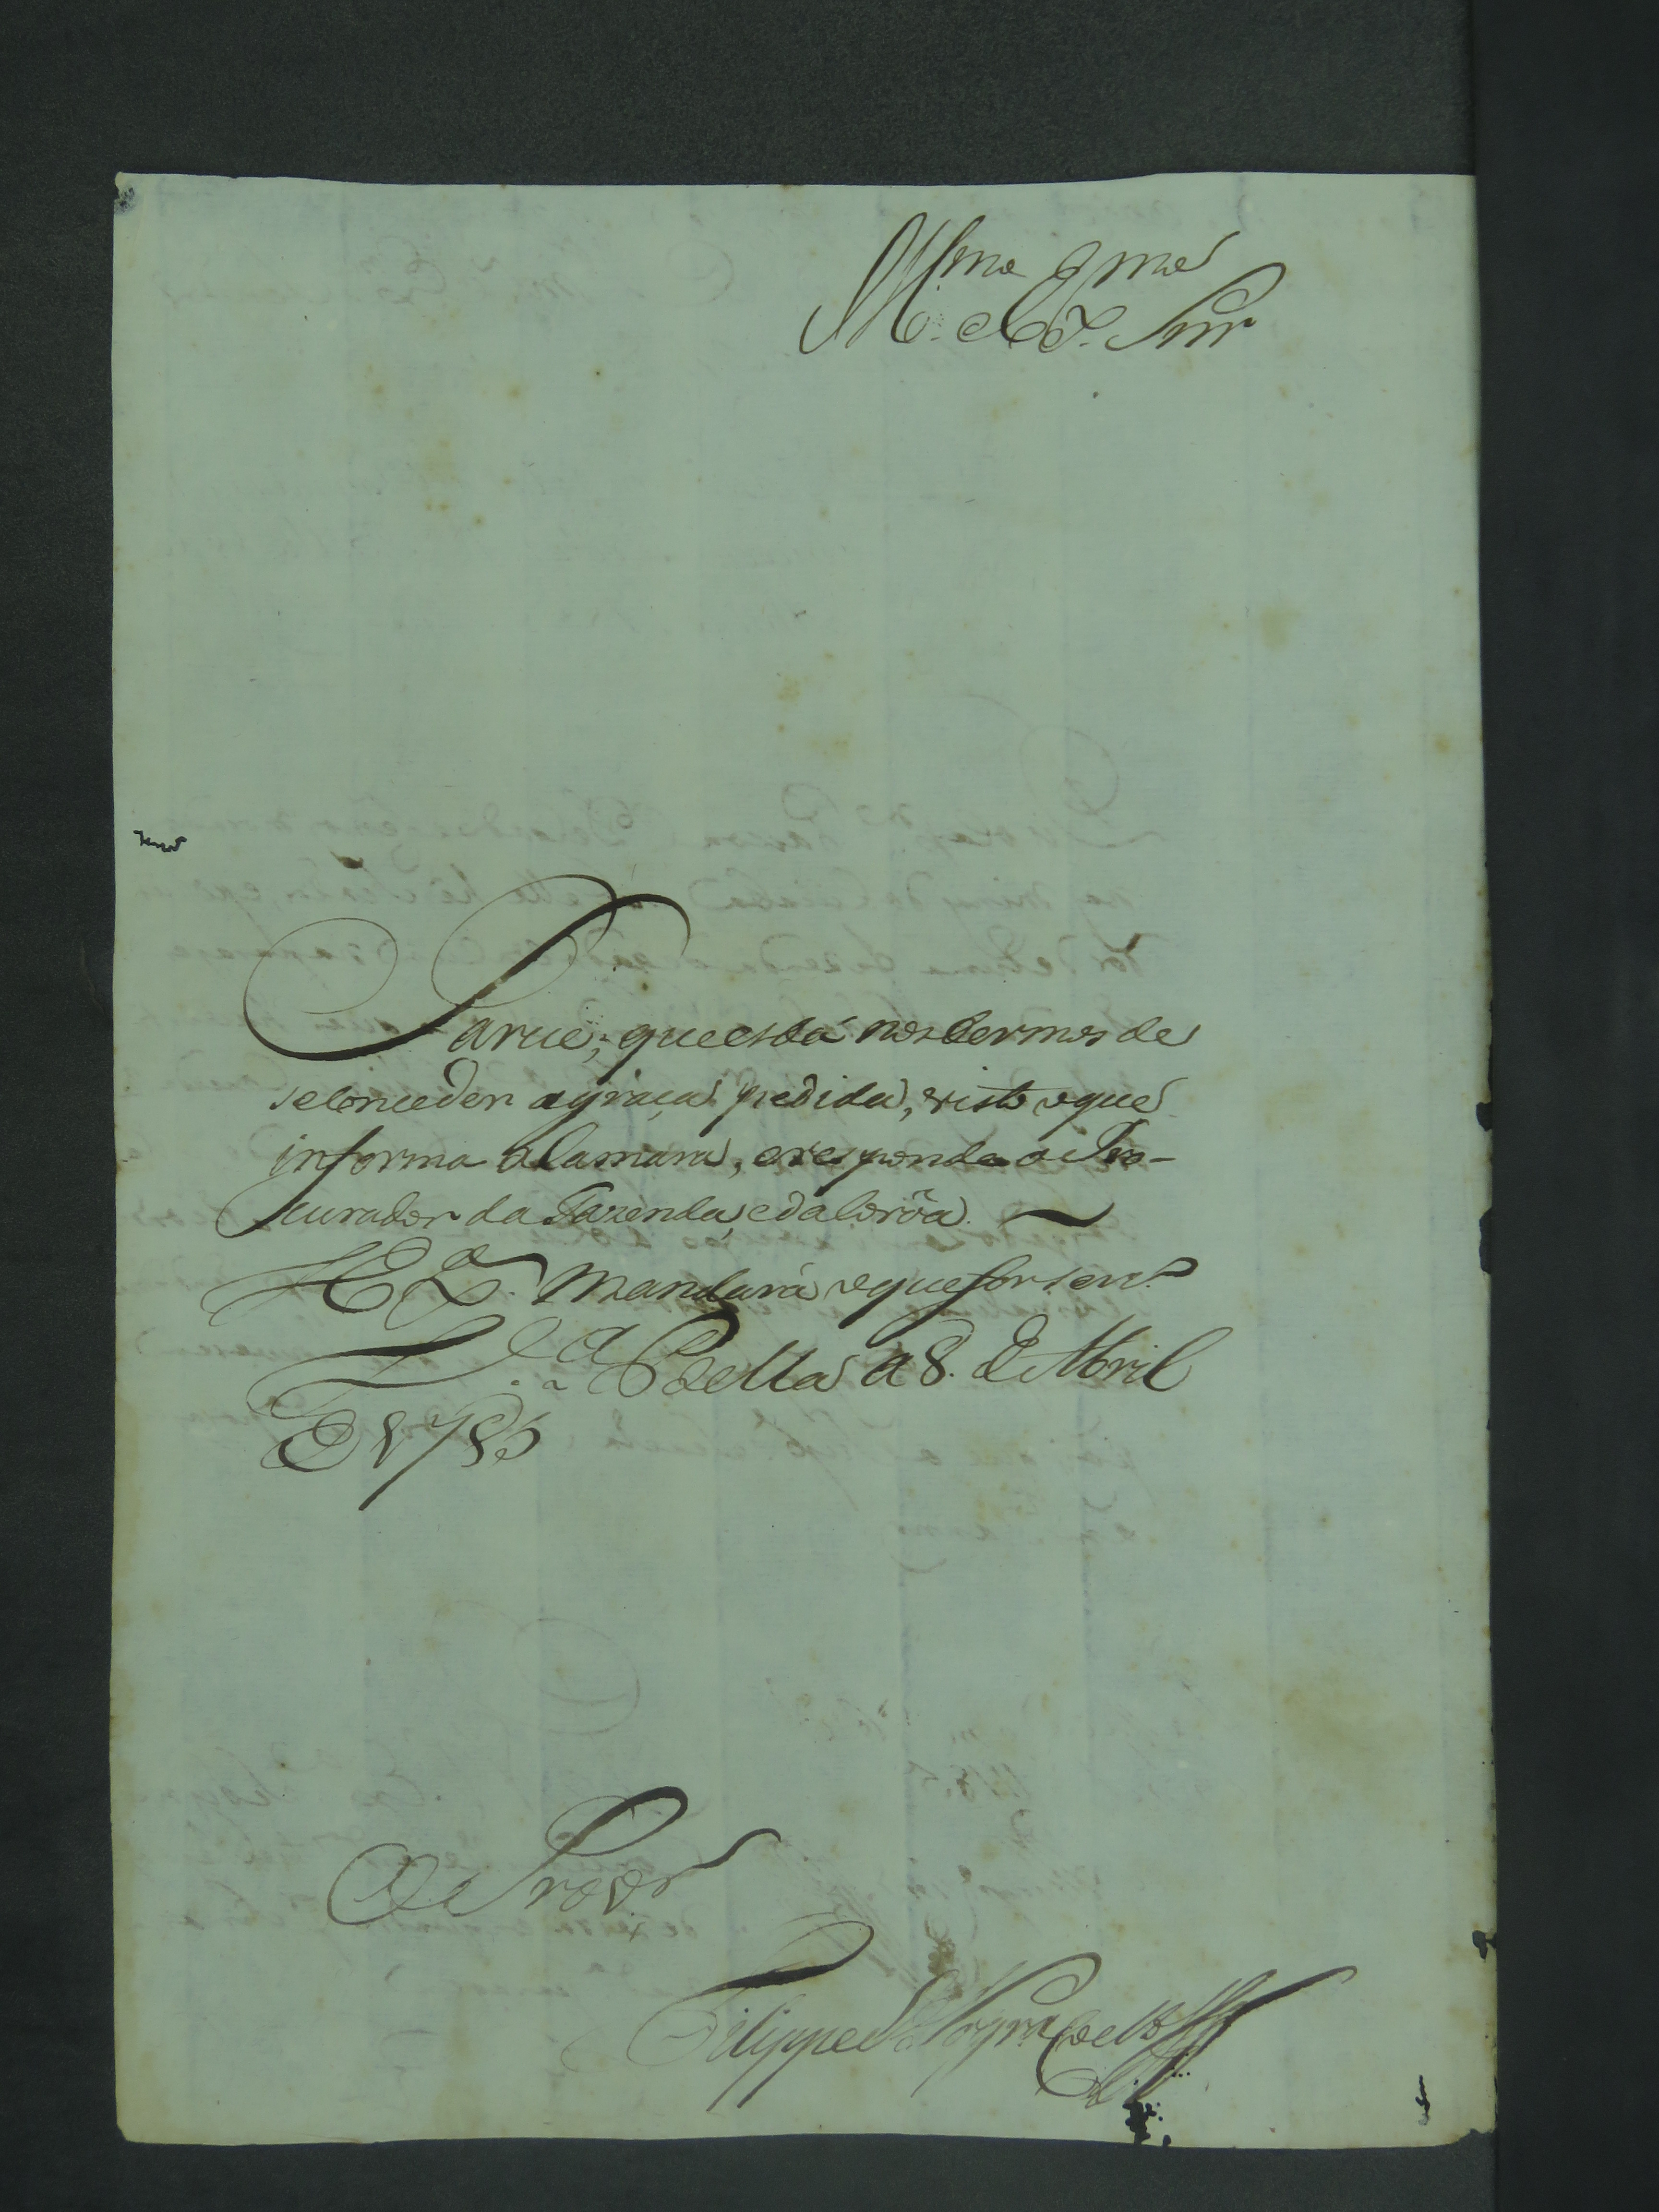 Illmo e Exmo Snr
Parece; que está nos termos de
se Conceder agraça pedida, visto oque
informa aCamara, eresponde o Pro-
curador da Fazenda, eda Coroã.
V Exa. Mandará oque for ser.º
Vª Bella a 8. de Abril
de 1785
O Provor
Filippe